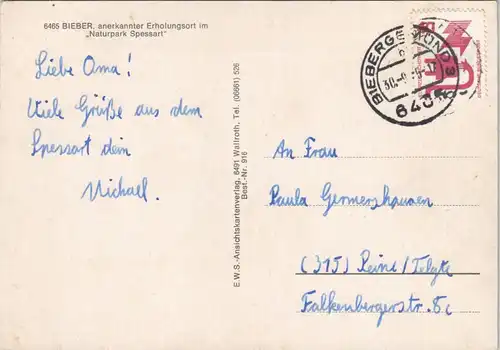 6465 BIEBER, anerkannter Erholungsort im
„Naturpark Spessart"
Liebe Oma!
Viele Grüße aus dem
Spessart dein
Michael.
E.W.S.-Ansichtskartenverlag, 6491 Wallroth, Tel. (06661) 526
Best.-Nr. 916
BIEBERGEMÜND 3
An Frau
Paula Germershausen
(315) Peine/Telgte
Falkenbergerstr. 8c